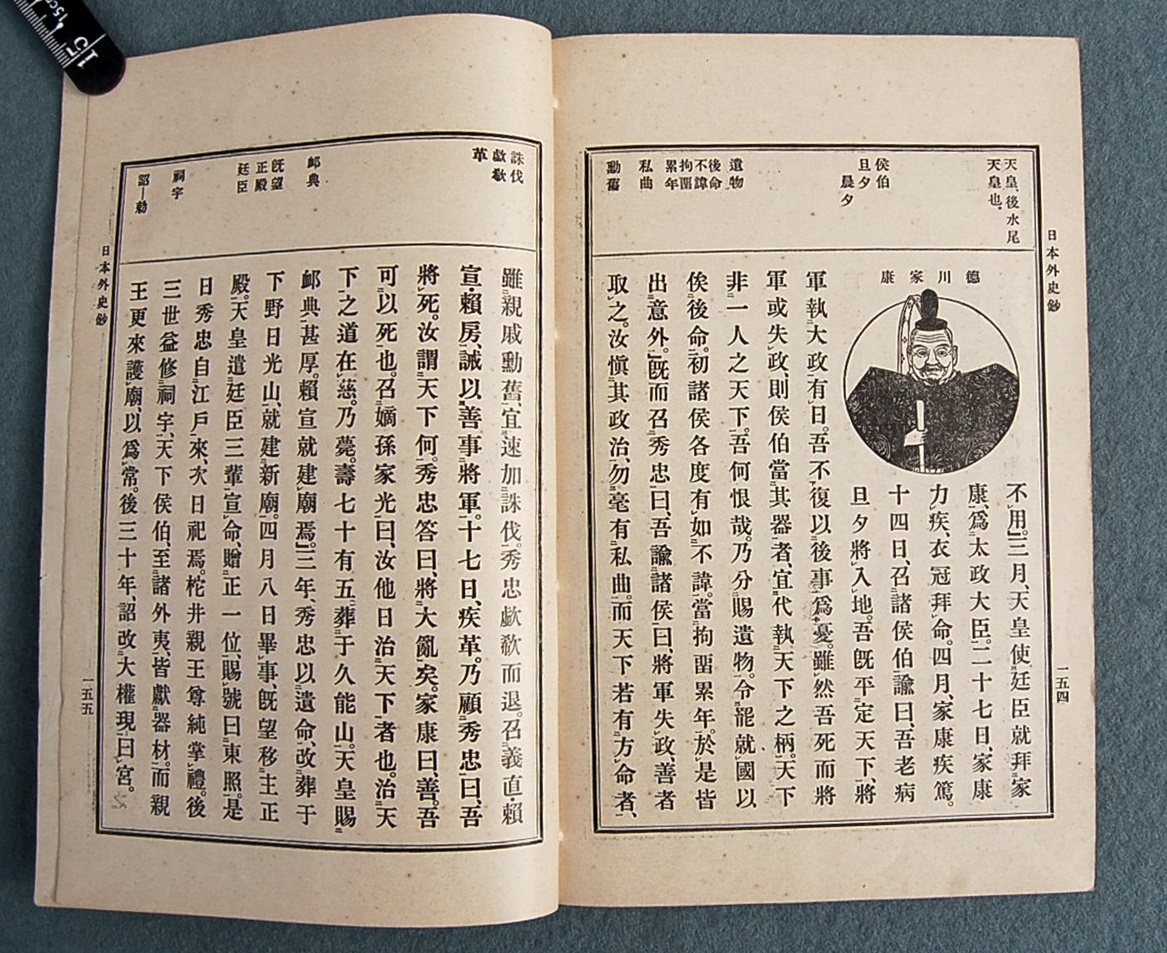 日本外史鈔
一五四
天皇、後水尾
天皇也。
侯伯
旦夕
晨夕
遺物
後命
不諱
拘畱
累年
私曲
勳舊
德川家康
不用。三月、天皇使廷臣就拜家
康爲太政大臣。二十七日、家康
力疾、衣冠拜命。四月、家康疾篤。
十四日、召諸侯伯諭曰、吾老病
旦夕將入地。吾既平定天下、將
軍執大政有日。吾不復以後事爲憂。雖然吾死而將
軍或失政、則侯伯當其器者、宜代執天下之柄。天下
非一人之天下。吾何恨哉。乃分賜遺物。令罷就國以
俟後命。初諸侯各度有如不諱。當拘畱累年。於是皆
出意外。既而召秀忠曰、吾諭諸侯曰、將軍失政、善者
取之。汝愼其政治、勿毫有私曲。而天下若有方命者、
誅伐
歔欷
革
卹典
既望
正殿
廷臣
祠宇
詔—勅
雖親戚勳舊、宜速加誅伐。秀忠歔欷而退。召義直・賴
宣・賴房、誡以善事將軍。十七日、疾革。乃顧秀忠曰、吾
將死。汝謂天下何。秀忠答曰、將大亂矣。家康曰、善。吾
可以死也。召嫡孫家光曰、汝他日治天下者也。治天
下之道在慈。乃薨。壽七十有五。葬于久能山。天皇賜
卹典甚厚。賴宣就建廟焉。三年、秀忠以遺命、改葬于
下野日光山、就建新廟。四月八日畢事、既望移主正
殿。天皇遣廷臣三輩宣命、贈正一位、賜號曰東照。是
日秀忠自江戶來、次日祀焉。梶井親王尊純掌禮。後
三世益修祠宇、天下侯伯、至諸外夷、皆獻器材。而親
王更來護廟、以爲常。後三十年、詔改大權現、曰宮。
日本外史鈔
一五五